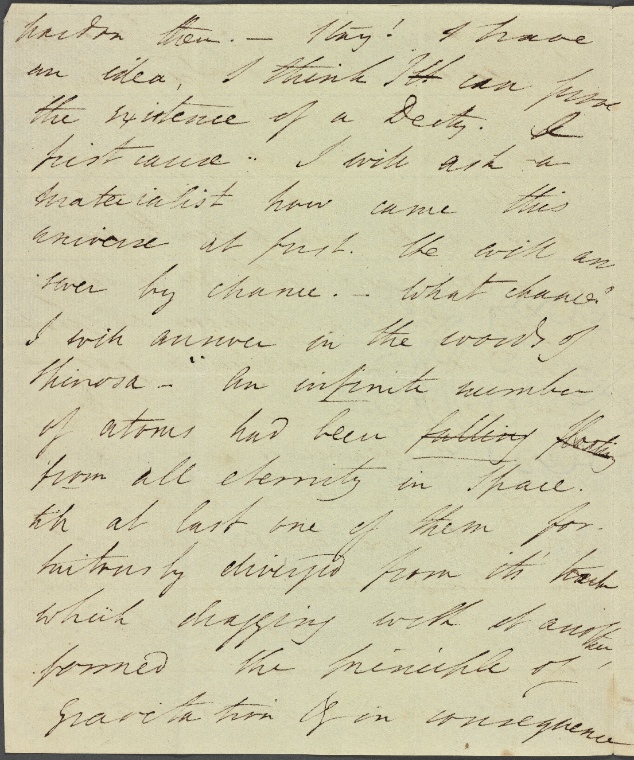 pardon then. — Stay! I have
an idea, I think I can prove
the existence of a Deity. A
first cause — I will ask a
materialist how came this
universe at first. He will an
swer by chance. — What chance?
I will answer in the words of
Spinosa — "An infinite number
of atoms had been falling floating
from all eternity in Space.
till at last one of them for-
tuitously diverged from its track
which dragging with it another,
formed the principle of
gravitation & in consequence